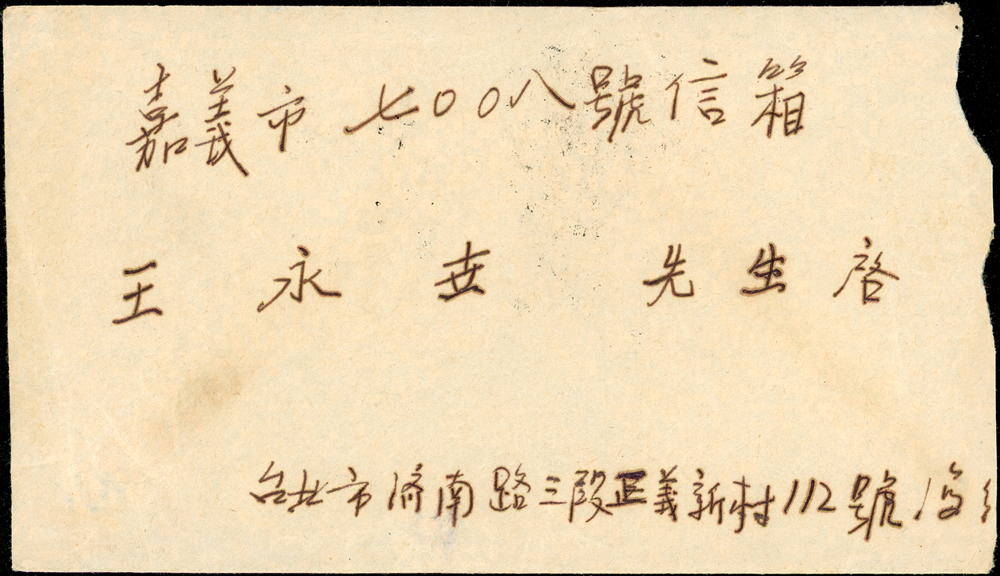 嘉義市七00八號信箱
王永世先生啓
台北市濟南路三段正義新村112號